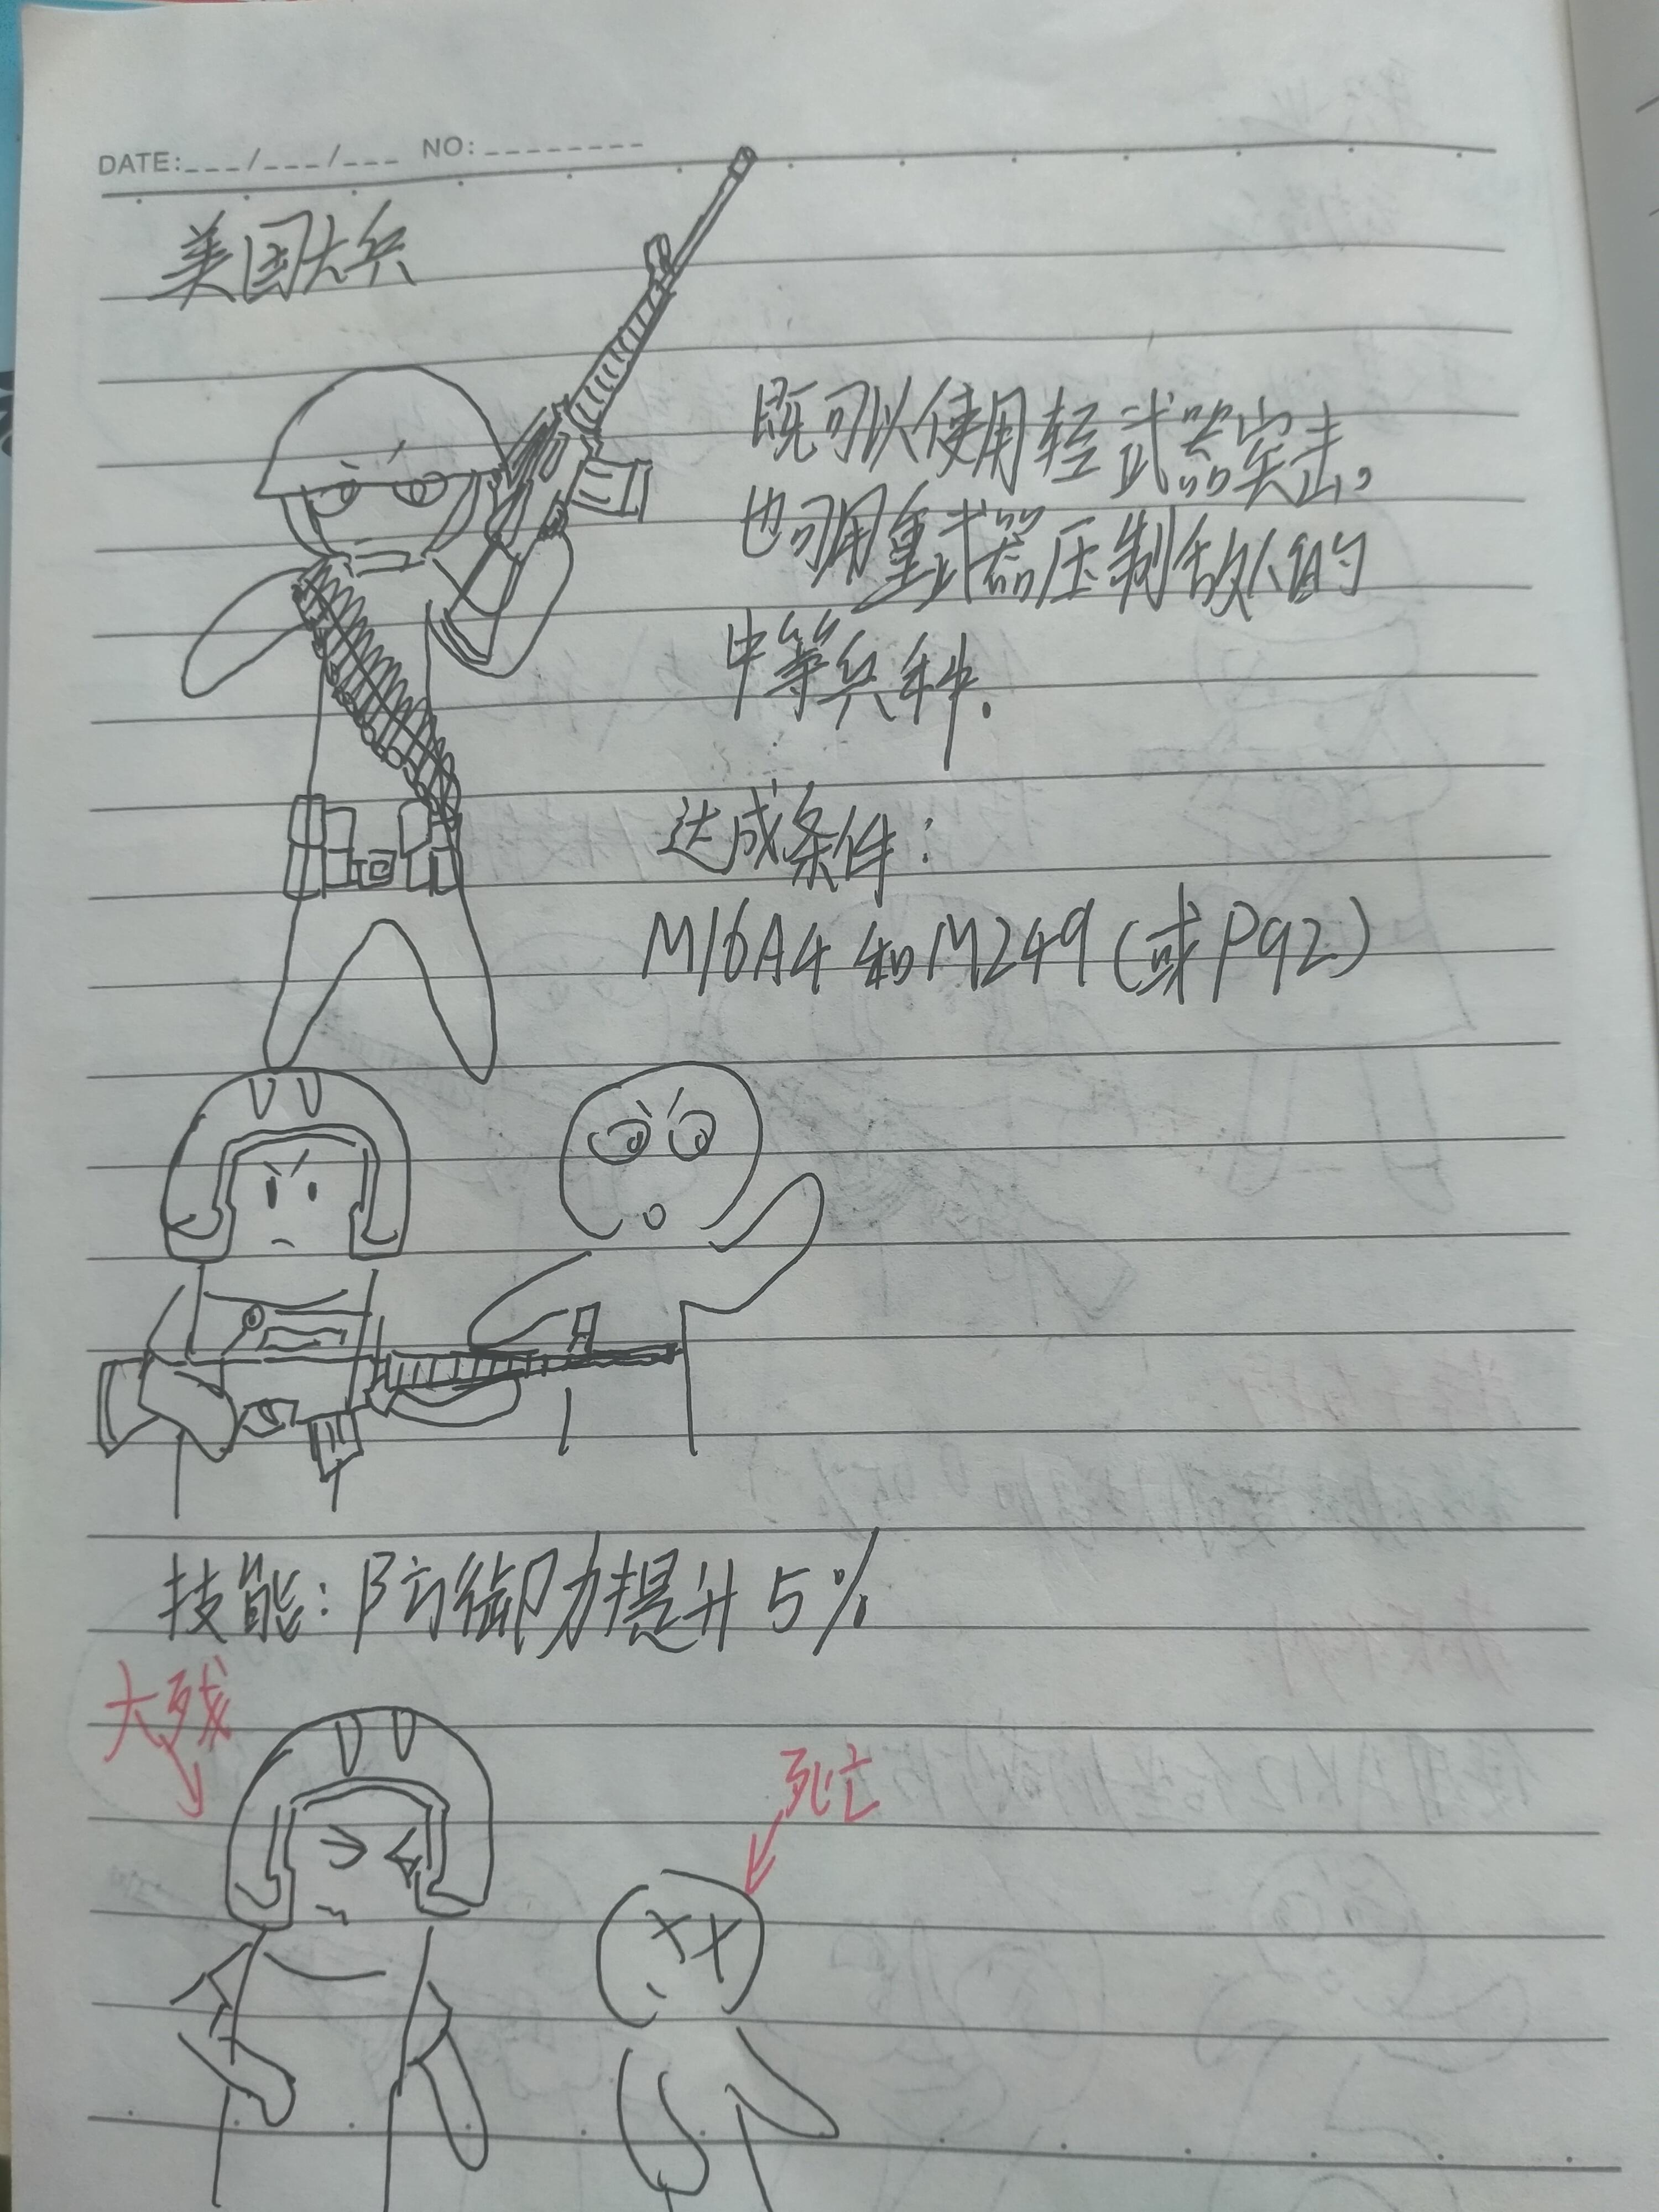 DATE:___/___/___ NO:_________
美国大兵
既可以使用轻武器突击。
也可用重武器压制敌人的
中等兵种.
达成条件:
M16A4和M249(或P92)
技能:防御力提升5%
大残
死亡